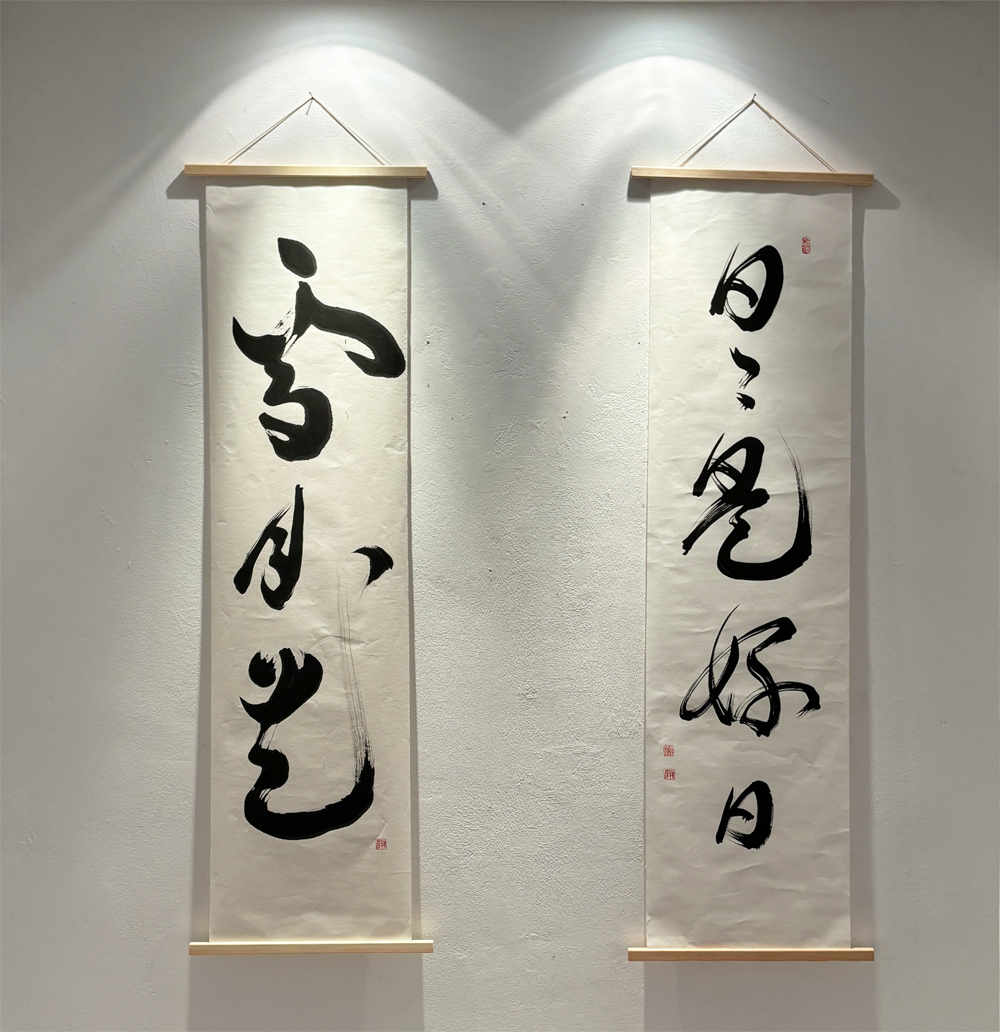 日々是好日
雪月花